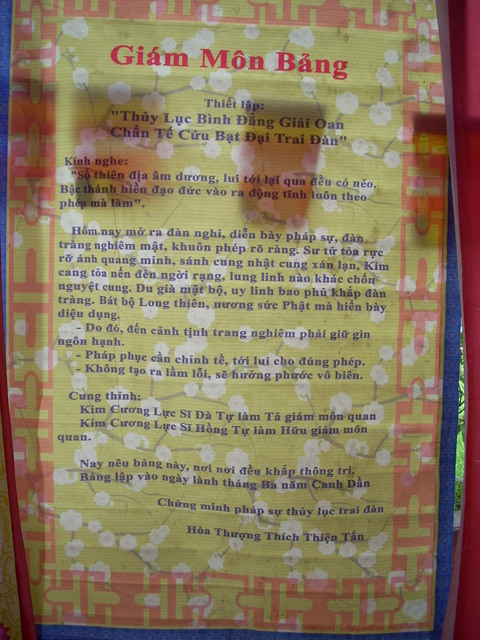 Giám Môn Bảng
Thiết lập:
"Thủy Lục Bình Đẳng Giải Oan
Chẩn Tế Cứu Bạt Đại Trai Đàn"
Kính nghe:
"Số thiên địa âm dương, lui tới lại qua đều có nẻo.
Bậc thánh hiền đạo đức vào ra động tĩnh luôn theo
phép mà làm".
Hôm nay mở ra đàn nghi, diễn bày pháp sự, đàn
tràng nghiêm mật, khuôn phép rõ ràng. Sư tử tỏa rực
rỡ ánh quang minh, sánh cung nhật cung xán lạn, Kim
cang tỏa nến đèn ngời rạng, lung linh nào khác chốn
nguyệt cung. Du già mật bộ, uy linh bao phủ khắp đàn
tràng. Bát bộ Long thiên, nương sức Phật mà hiển bày
diệu dụng.
- Do đó, đến cảnh tịnh trang nghiêm phải giữ gìn
ngôn hạnh.
- Pháp phục cần chỉnh tề, tới lui cho đúng phép.
- Không tạo ra lầm lỗi, sẽ hưởng phước vô biên.
Cung thỉnh:
Kim Cương Lực Sĩ Đà Tự làm Tả giám môn quan
Kim Cương Lực Sĩ Hồng Tự làm Hữu giám môn
quan.
Nay nêu bảng này, nơi nơi đều khắp thông tri.
Bảng lập vào ngày lành tháng Ba năm Canh Dần
Chứng minh pháp sự thủy lục trai đàn
Hòa Thượng Thích Thiện Tấn